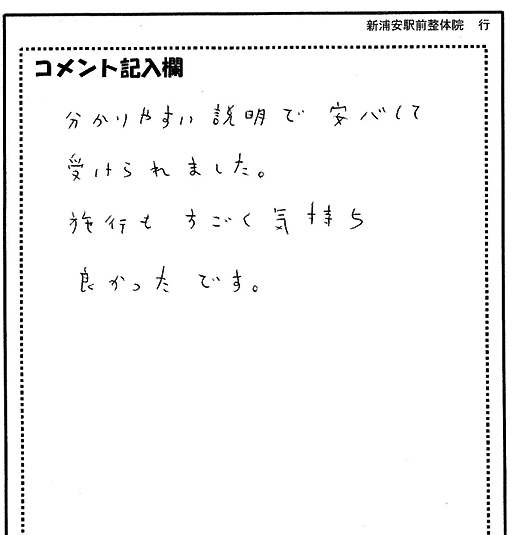 新浦安駅前整体院 行
コメント記入欄
分かりやすい説明で 安心して
受けられました。
施行も すごく気持ち
良かったです。